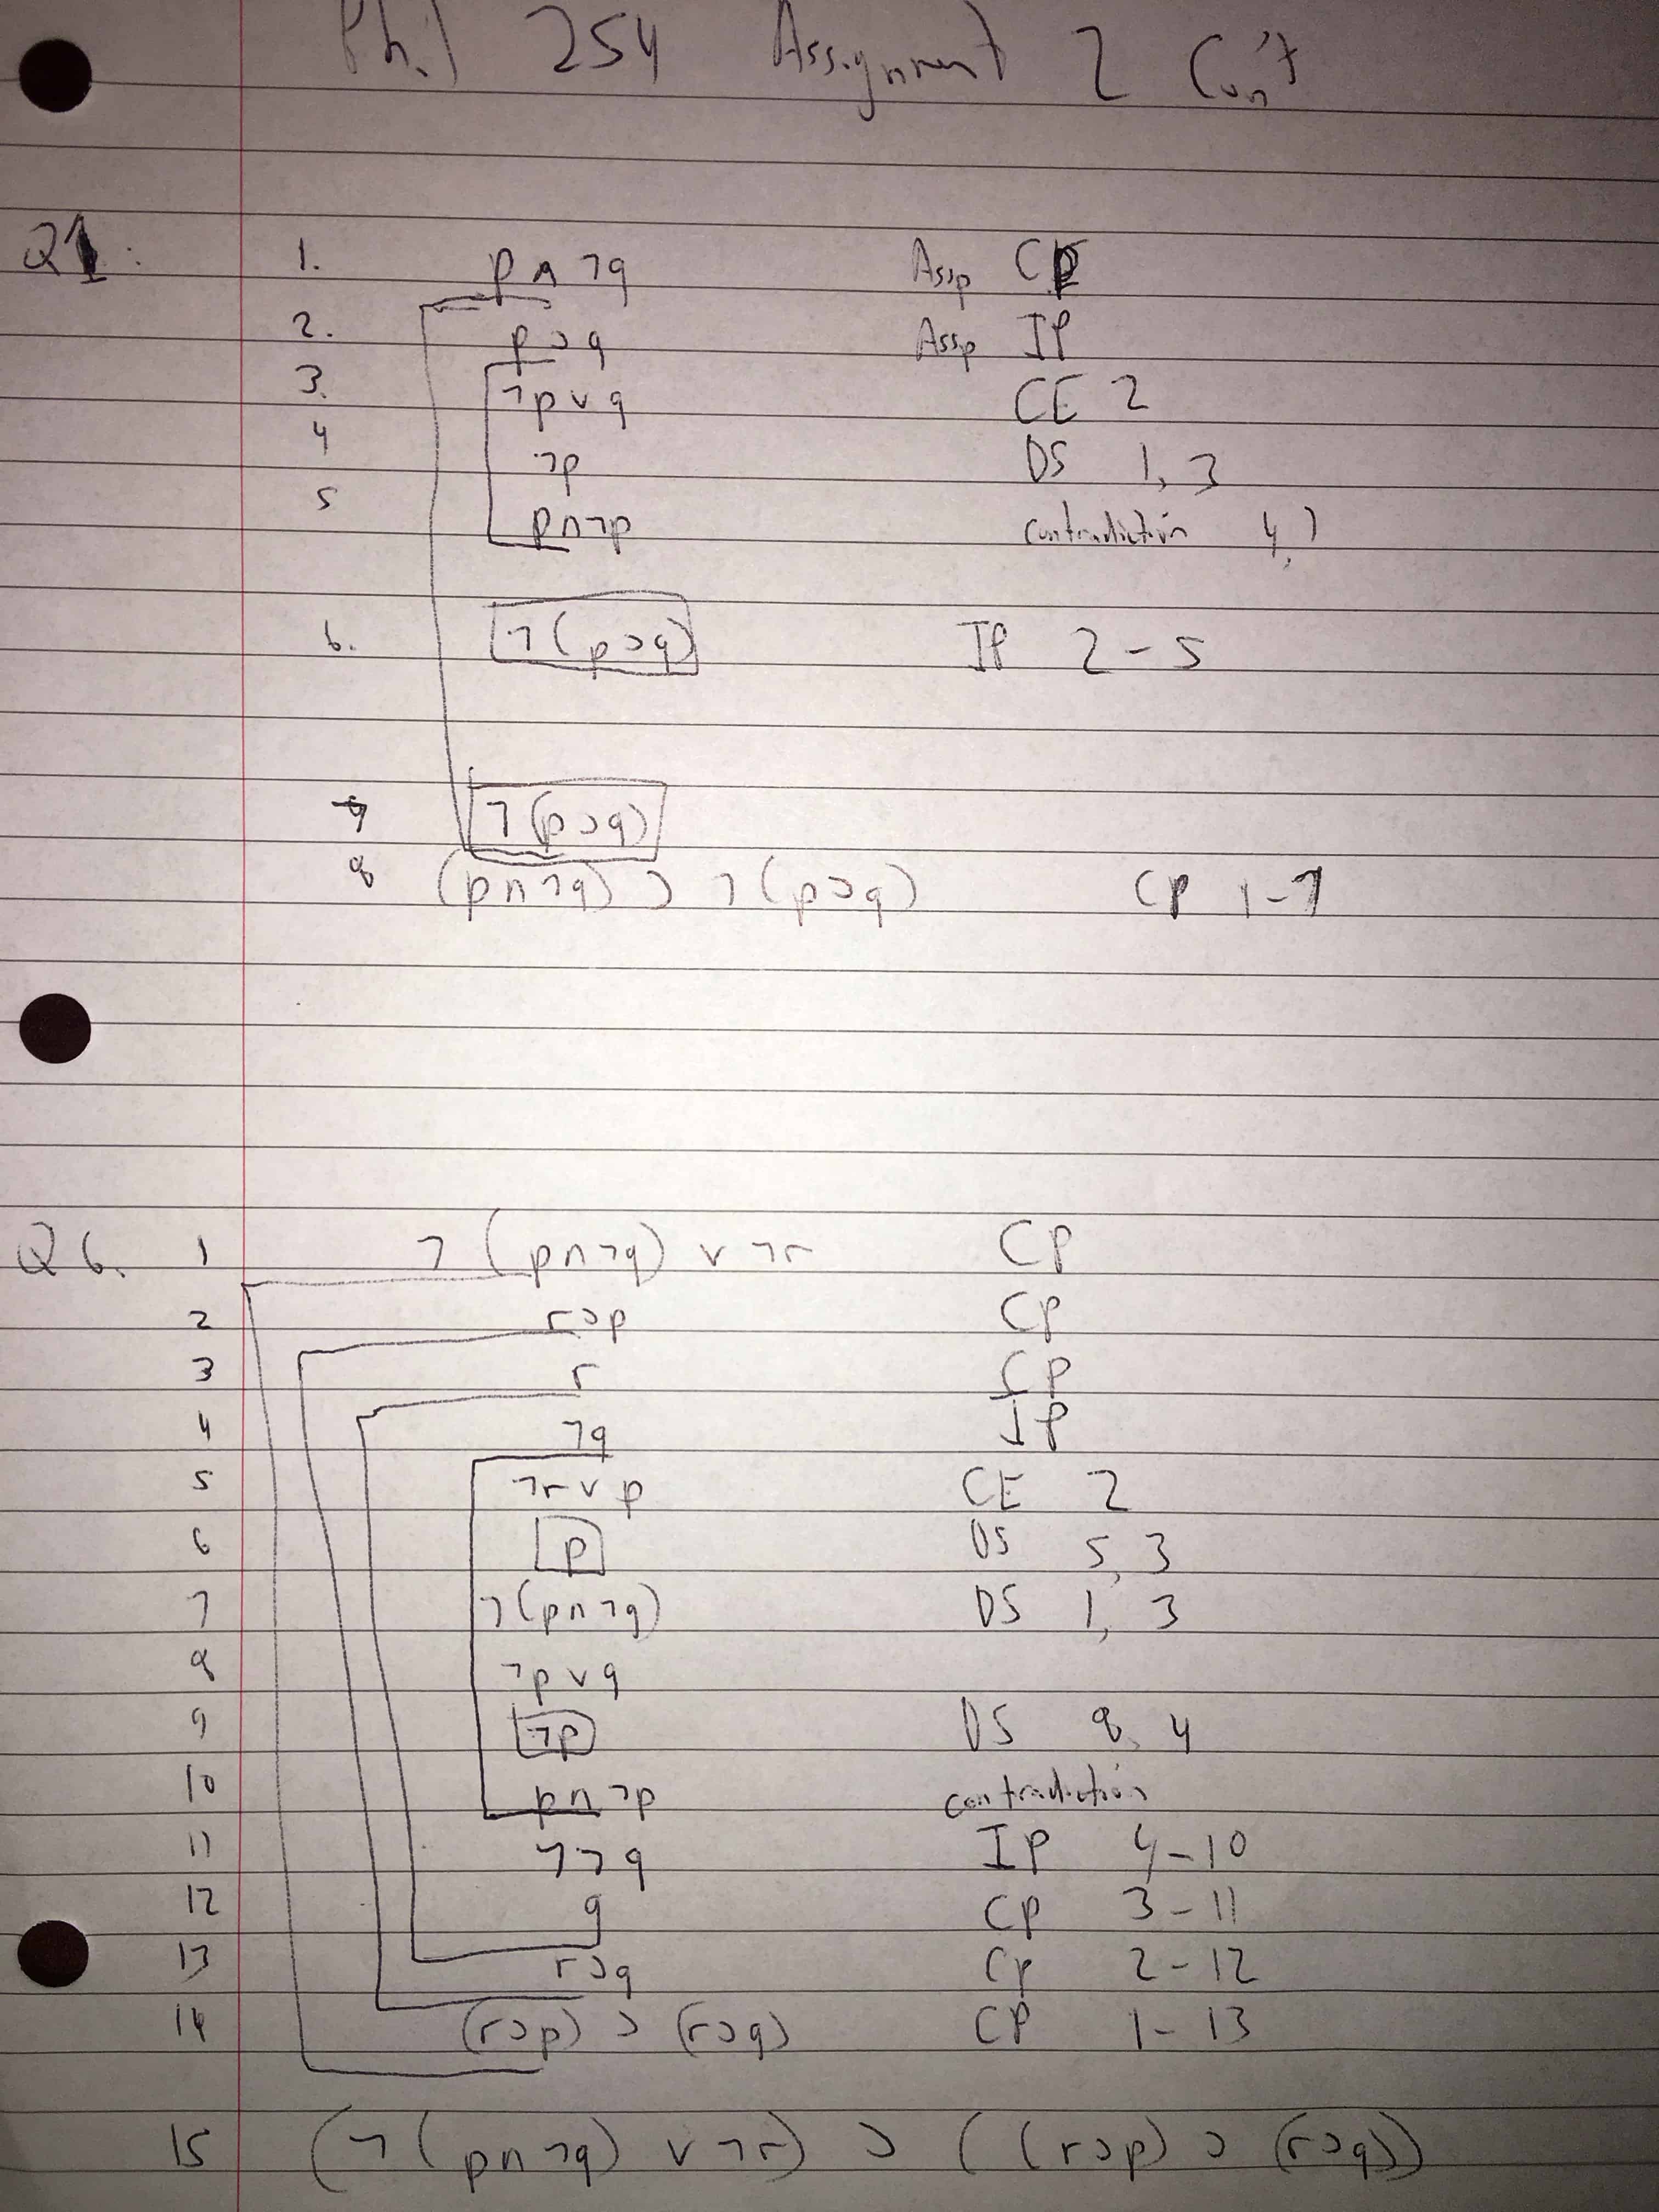 Phil 254 Assignment 2 Con't
Q1: 1. p ∧ ¬q Assp CP
2. p ⊃ q Assp IP
3. ¬p ∨ q CE 2
4 ¬p DS 1, 3
5 p ∧ ¬p contradiction 4, 1
6. ¬(p ⊃ q) IP 2-5
7 ¬(p ⊃ q)
8 (p ∧ ¬q) ⊃ ¬(p ⊃ q) CP 1-7
Q6. 1 ¬(p ∧ ¬q) ∨ ¬r CP
2 r ⊃ p CP
3 r CP
4 ¬q IP
5 ¬r ∨ p CE 2
6 p DS 5, 3
7 ¬(p ∧ ¬q) DS 1, 3
8 ¬p ∨ q
9 ¬p DS 8, 4
10 p ∧ ¬p contradiction
11 ¬¬q IP 4-10
12 q CP 3-11
13 r ⊃ q CP 2-12
14 (r ⊃ p) ⊃ (r ⊃ q) CP 1-13
15 (¬(p ∧ ¬q) ∨ ¬r) ⊃ ((r ⊃ p) ⊃ (r ⊃ q))